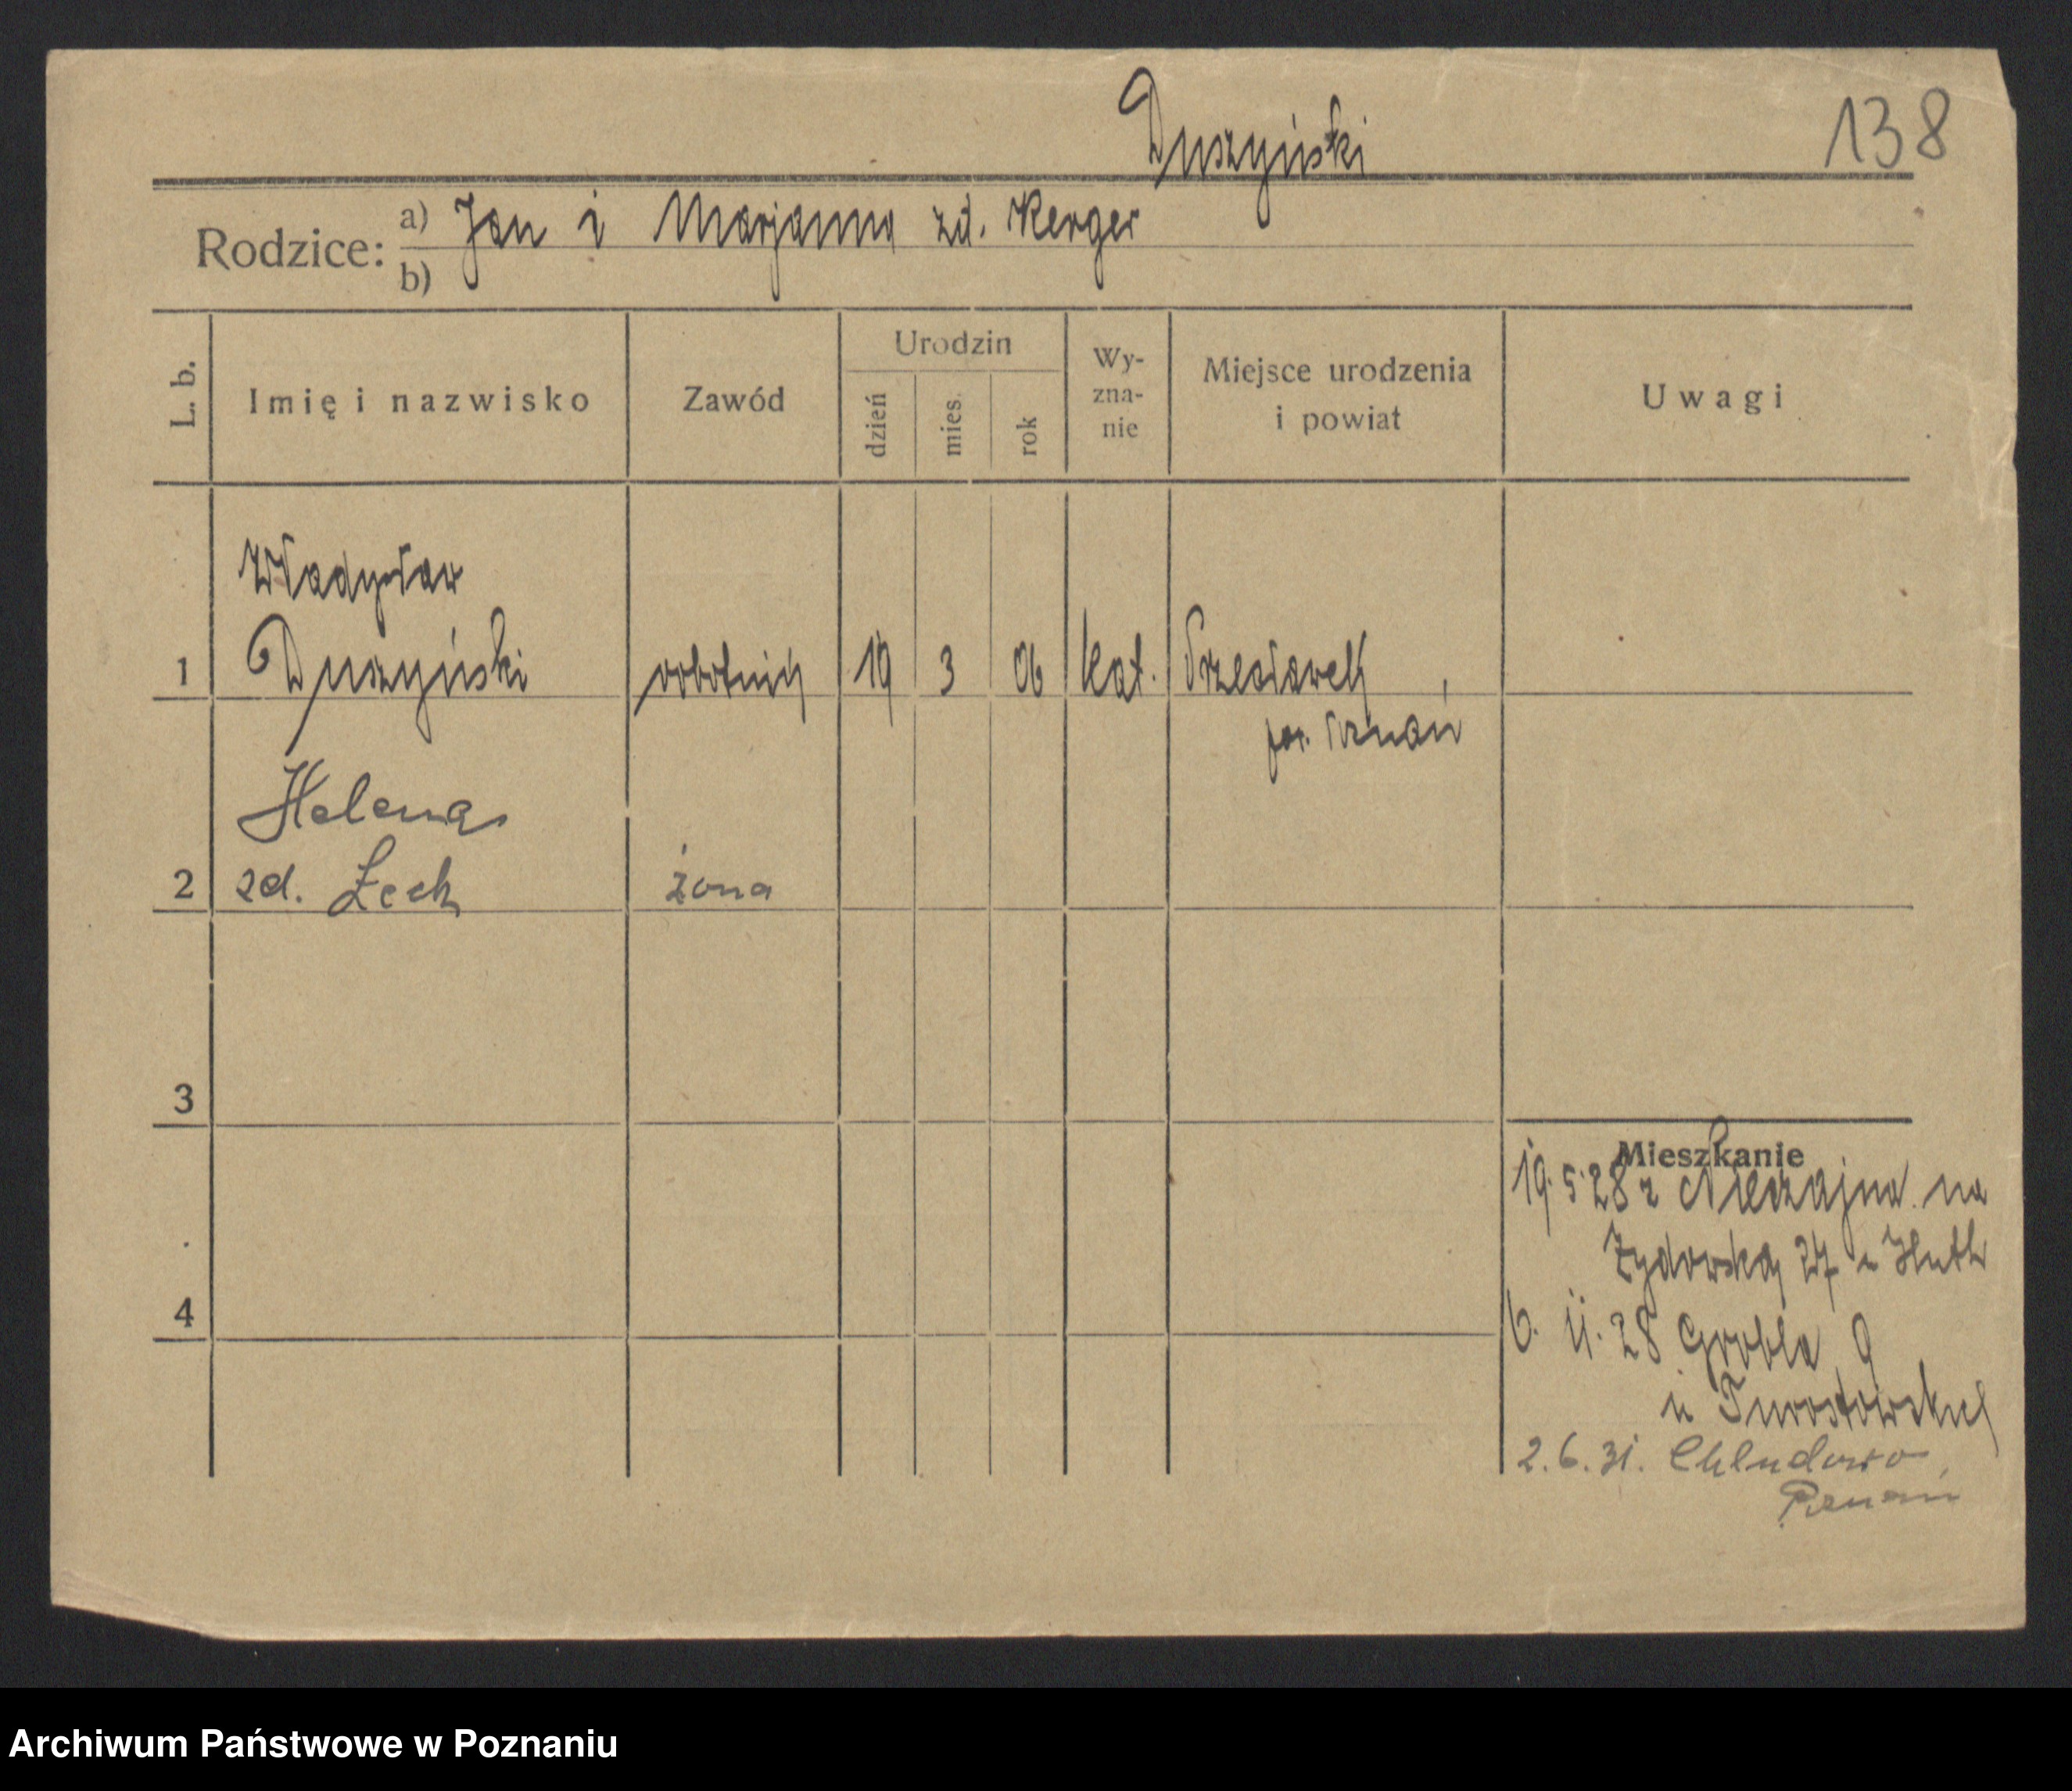 Duszyński
138
Rodzice: a) Jan i Marjanna zd. Kerger
b)
L. b.
Imię i nazwisko
Zawód
Urodzin
dzień
mies.
rok
Wy-
zna-
nie
Miejsce urodzenia
i powiat
Uwagi
Władysław
1 Duszyński robotnik 19 3 06 kat. Przecławek
pow. Poznań
Helena
2 zd. Lech żona
3
Mieszkanie
19. 5. 28 z Nieczajna na
Żydowską 27 u
4
6. 11. 28 Grobla 9
u Turostowskiej
2. 6. 31. Chludowo,
Poznań
Archiwum Państwowe w Poznaniu